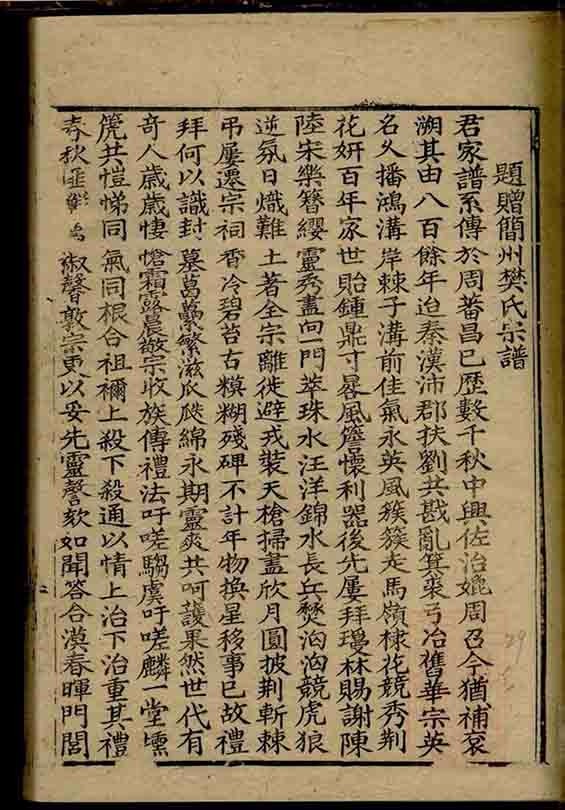 題贈簡州樊氏宗譜
君家譜系傳於周蕃昌已歷數千秋中興佐治媲周召今猶補袞
溯其由八百餘年迨秦漢沛郡扶劉共戡亂箕裘弓冶舊華宗英
名久播鴻溝岸棘子溝前佳氣永英風簇簇走馬嶺棣花競秀荆
花妍百年家世貽鍾鼎寸晷風簷懷利器後先屢拜瓊林賜謝陳
陸宋樂簪纓靈秀盡向一門萃珠水汪洋錦水長兵燹洶洶競虎狼
逆氛日熾難土著全宗離徙避戎裝天槍掃盡欣月圓披荆斬棘
弔屢遷宗祠香冷碧苔古糢糊殘碑不計年物換星移事已故禮
拜何以識封墓葛藟縈繁滋瓜瓞綿永期靈爽共呵護果然世代有
奇人歲歲悽愴霜露晨敬宗收族傳禮法吁嗟騶虞吁嗟麟一堂壎
箎共愷悌同氣同根合祖禰上殺下殺通以情上治下治重其禮
春秋匪懈 淑馨敦宗更以妥先靈謦欬如聞答合漠春暉門閭